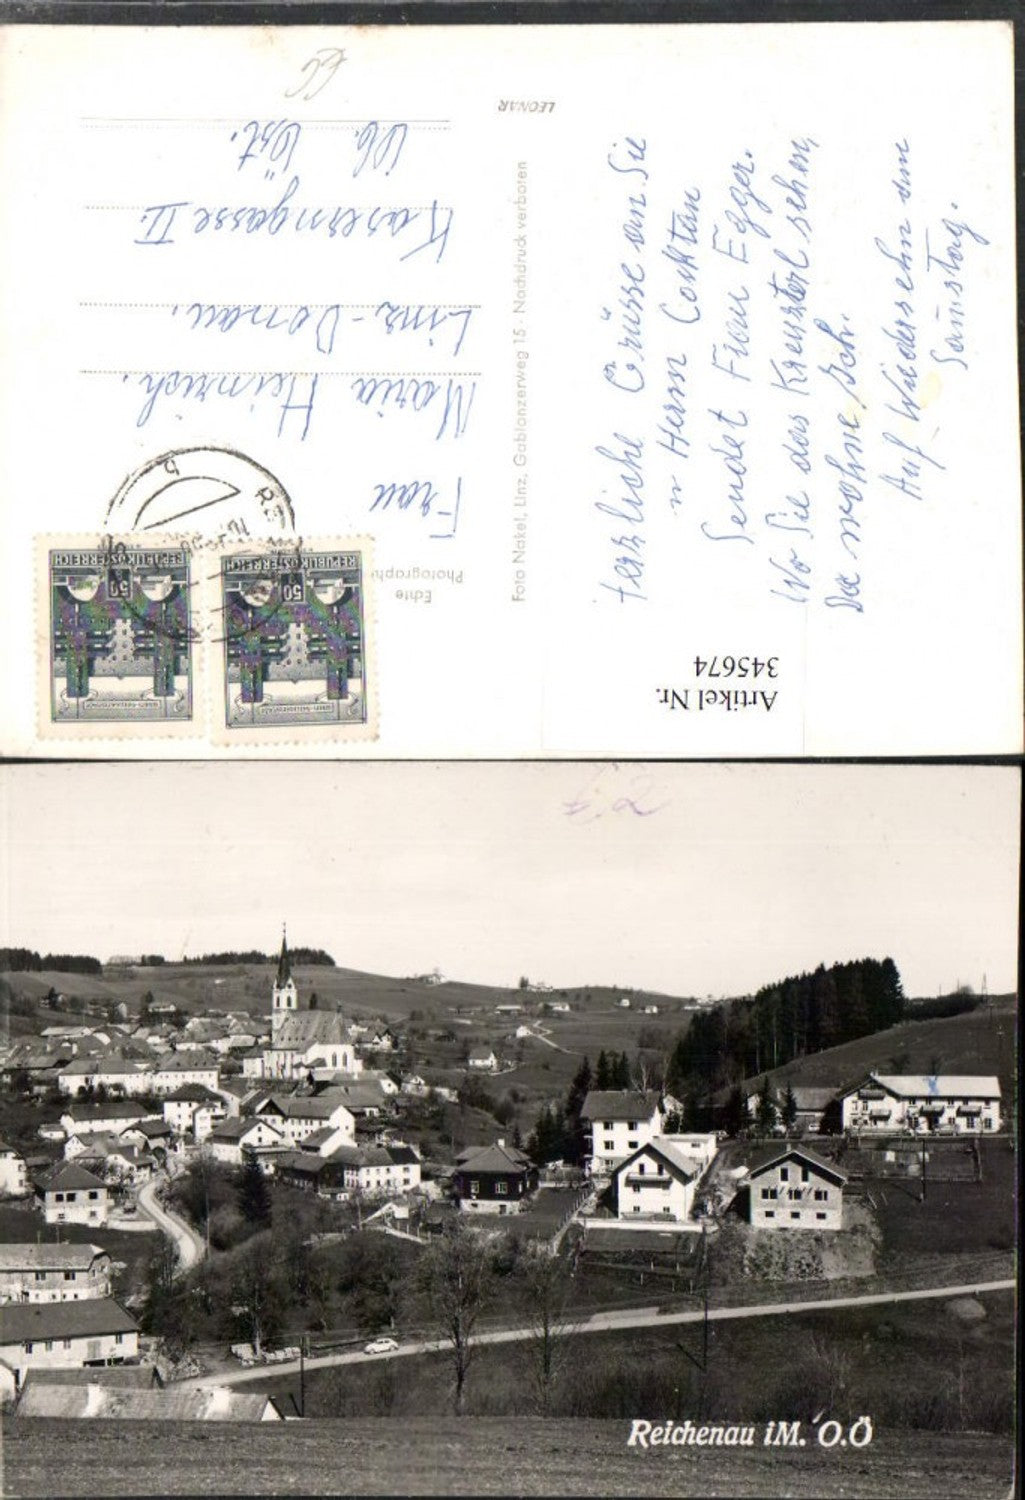 Herzliche Grüsse an Sie
u Herrn Cocktan
Sendet Frau Egger.
Wo Sie das Kreuzterl sehen,
Da wohne ich.
Auf Widersehn am
Samstag.
LEONAR
Foto Nakel, Linz, Gablonzerweg 15 · Nachdruck verboten
Echte
Photographi
Frau
Maria Heinrich.
Linz-Donau.
Kaserngasse II.
Öst.
REPUBLIK ÖSTERREICH
50
REPUBLIK ÖSTERREICH
50
Artikel Nr.
345674
Reichenau i M. O.Ö